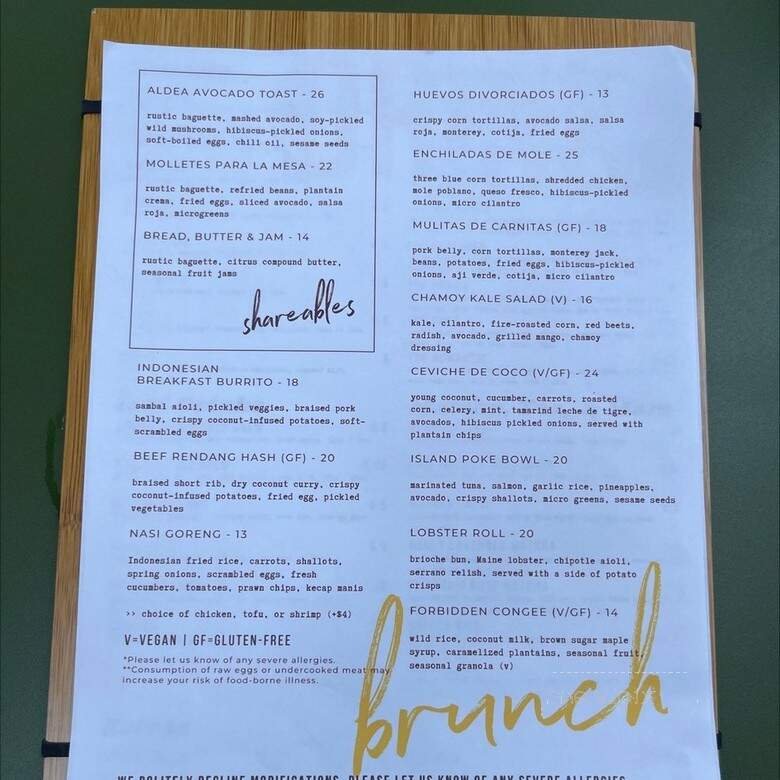 ALDEA AVOCADO TOAST - 26
rustic baguette, mashed avocado, soy-pickled
wild mushrooms, hibiscus-pickled onions,
soft-boiled eggs, chili oil, sesame seeds
MOLLETES PARA LA MESA - 22
rustic baguette, refried beans, plantain
crema, fried eggs, sliced avocado, salsa
roja, microgreens
BREAD, BUTTER & JAM - 14
rustic baguette, citrus compound butter,
seasonal fruit jams
shareables
INDONESIAN
BREAKFAST BURRITO - 18
sambal aioli, pickled veggies, braised pork
belly, crispy coconut-infused potatoes, soft-
scrambled eggs
BEEF RENDANG HASH (GF) - 20
braised short rib, dry coconut curry, crispy
coconut-infused potatoes, fried egg, pickled
vegetables
NASI GORENG - 13
Indonesian fried rice, carrots, shallots,
spring onions, scrambled eggs, fresh
cucumbers, tomatoes, prawn chips, kecap manis
>> choice of chicken, tofu, or shrimp (+$4)
V=VEGAN | GF=GLUTEN-FREE
*Please let us know of any severe allergies.
**Consumption of raw eggs or undercooked meat may
increase your risk of food-borne illness.
HUEVOS DIVORCIADOS (GF) - 13
crispy corn tortillas, avocado salsa, salsa
roja, monterey, cotija, fried eggs
ENCHILADAS DE MOLE - 25
three blue corn tortillas, shredded chicken,
mole poblano, queso fresco, hibiscus-pickled
onions, micro cilantro
MULITAS DE CARNITAS (GF) - 18
pork belly, corn tortillas, monterey jack,
beans, potatoes, fried eggs, hibiscus-pickled
onions, aji verde, cotija, micro cilantro
CHAMOY KALE SALAD (V) - 16
kale, cilantro, fire-roasted corn, red beets,
radish, avocado, grilled mango, chamoy
dressing
CEVICHE DE COCO (V/GF) - 24
young coconut, cucumber, carrots, roasted
corn, celery, mint, tamarind leche de tigre,
avocados, hibiscus pickled onions, served with
plantain chips
ISLAND POKE BOWL - 20
marinated tuna, salmon, garlic rice, pineapples,
avocado, crispy shallots, micro greens, sesame seeds
LOBSTER ROLL - 20
brioche bun, Maine lobster, chipotle aioli,
serrano relish, served with a side of potato
crisps
FORBIDDEN CONGEE (V/GF) - 14
wild rice, coconut milk, brown sugar maple
syrup, caramelized plantains, seasonal fruit,
seasonal granola (v)
brunch
WE POLITELY DECLINE MODIFICATIONS. PLEASE LET US KNOW OF ANY SEVERE ALLERGIES.